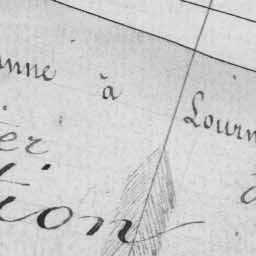 nne à Lourn
er
tion